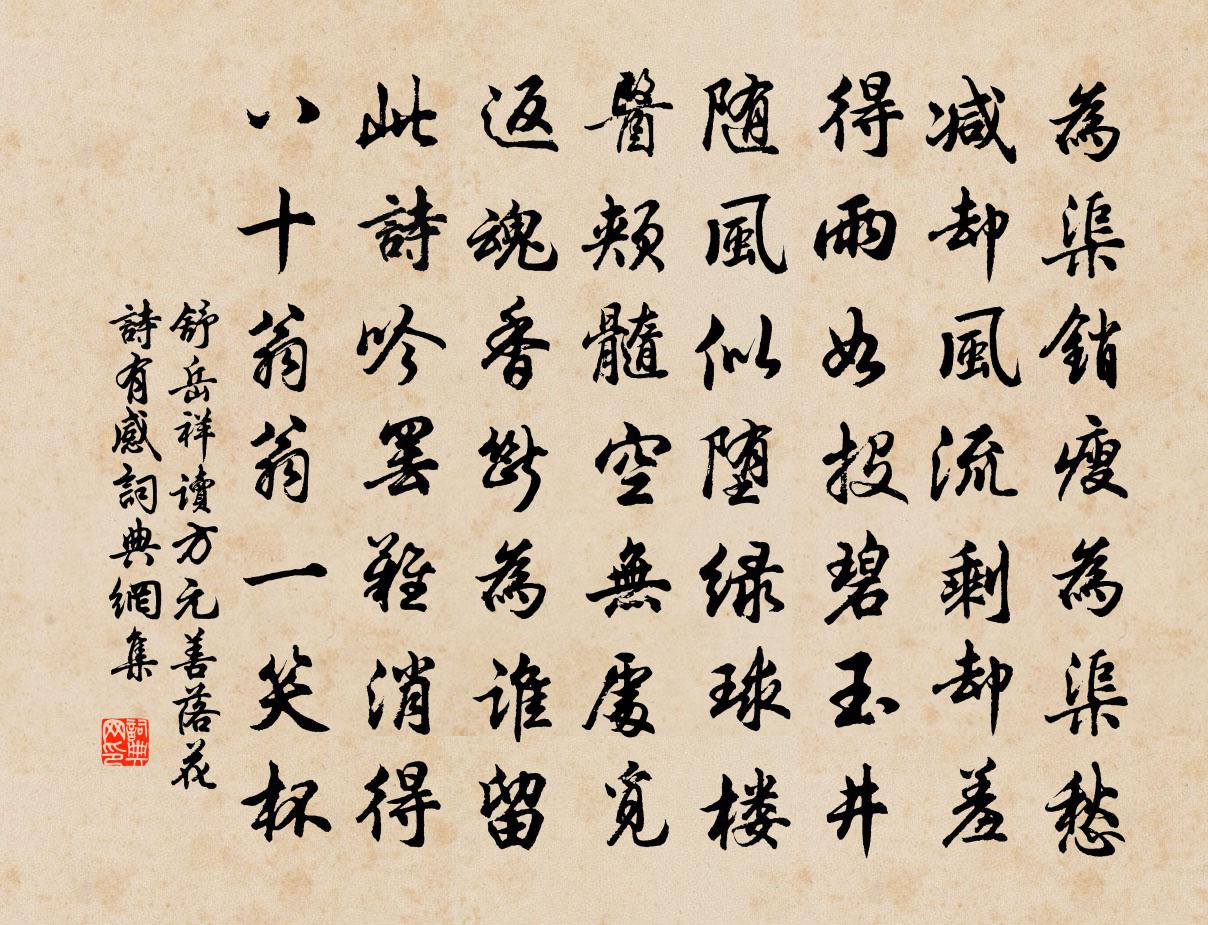 為渠銷瘦為渠愁
減却風流剩却羞
得雨如投碧玉井
随風似堕緑球楼
醫頰髓空無處覓
返魂香斷為誰留
此詩吟罢難消得
八十翁翁一笑杯
舒岳祥讀方元善落花
詩有感詞典網集
詞典网印